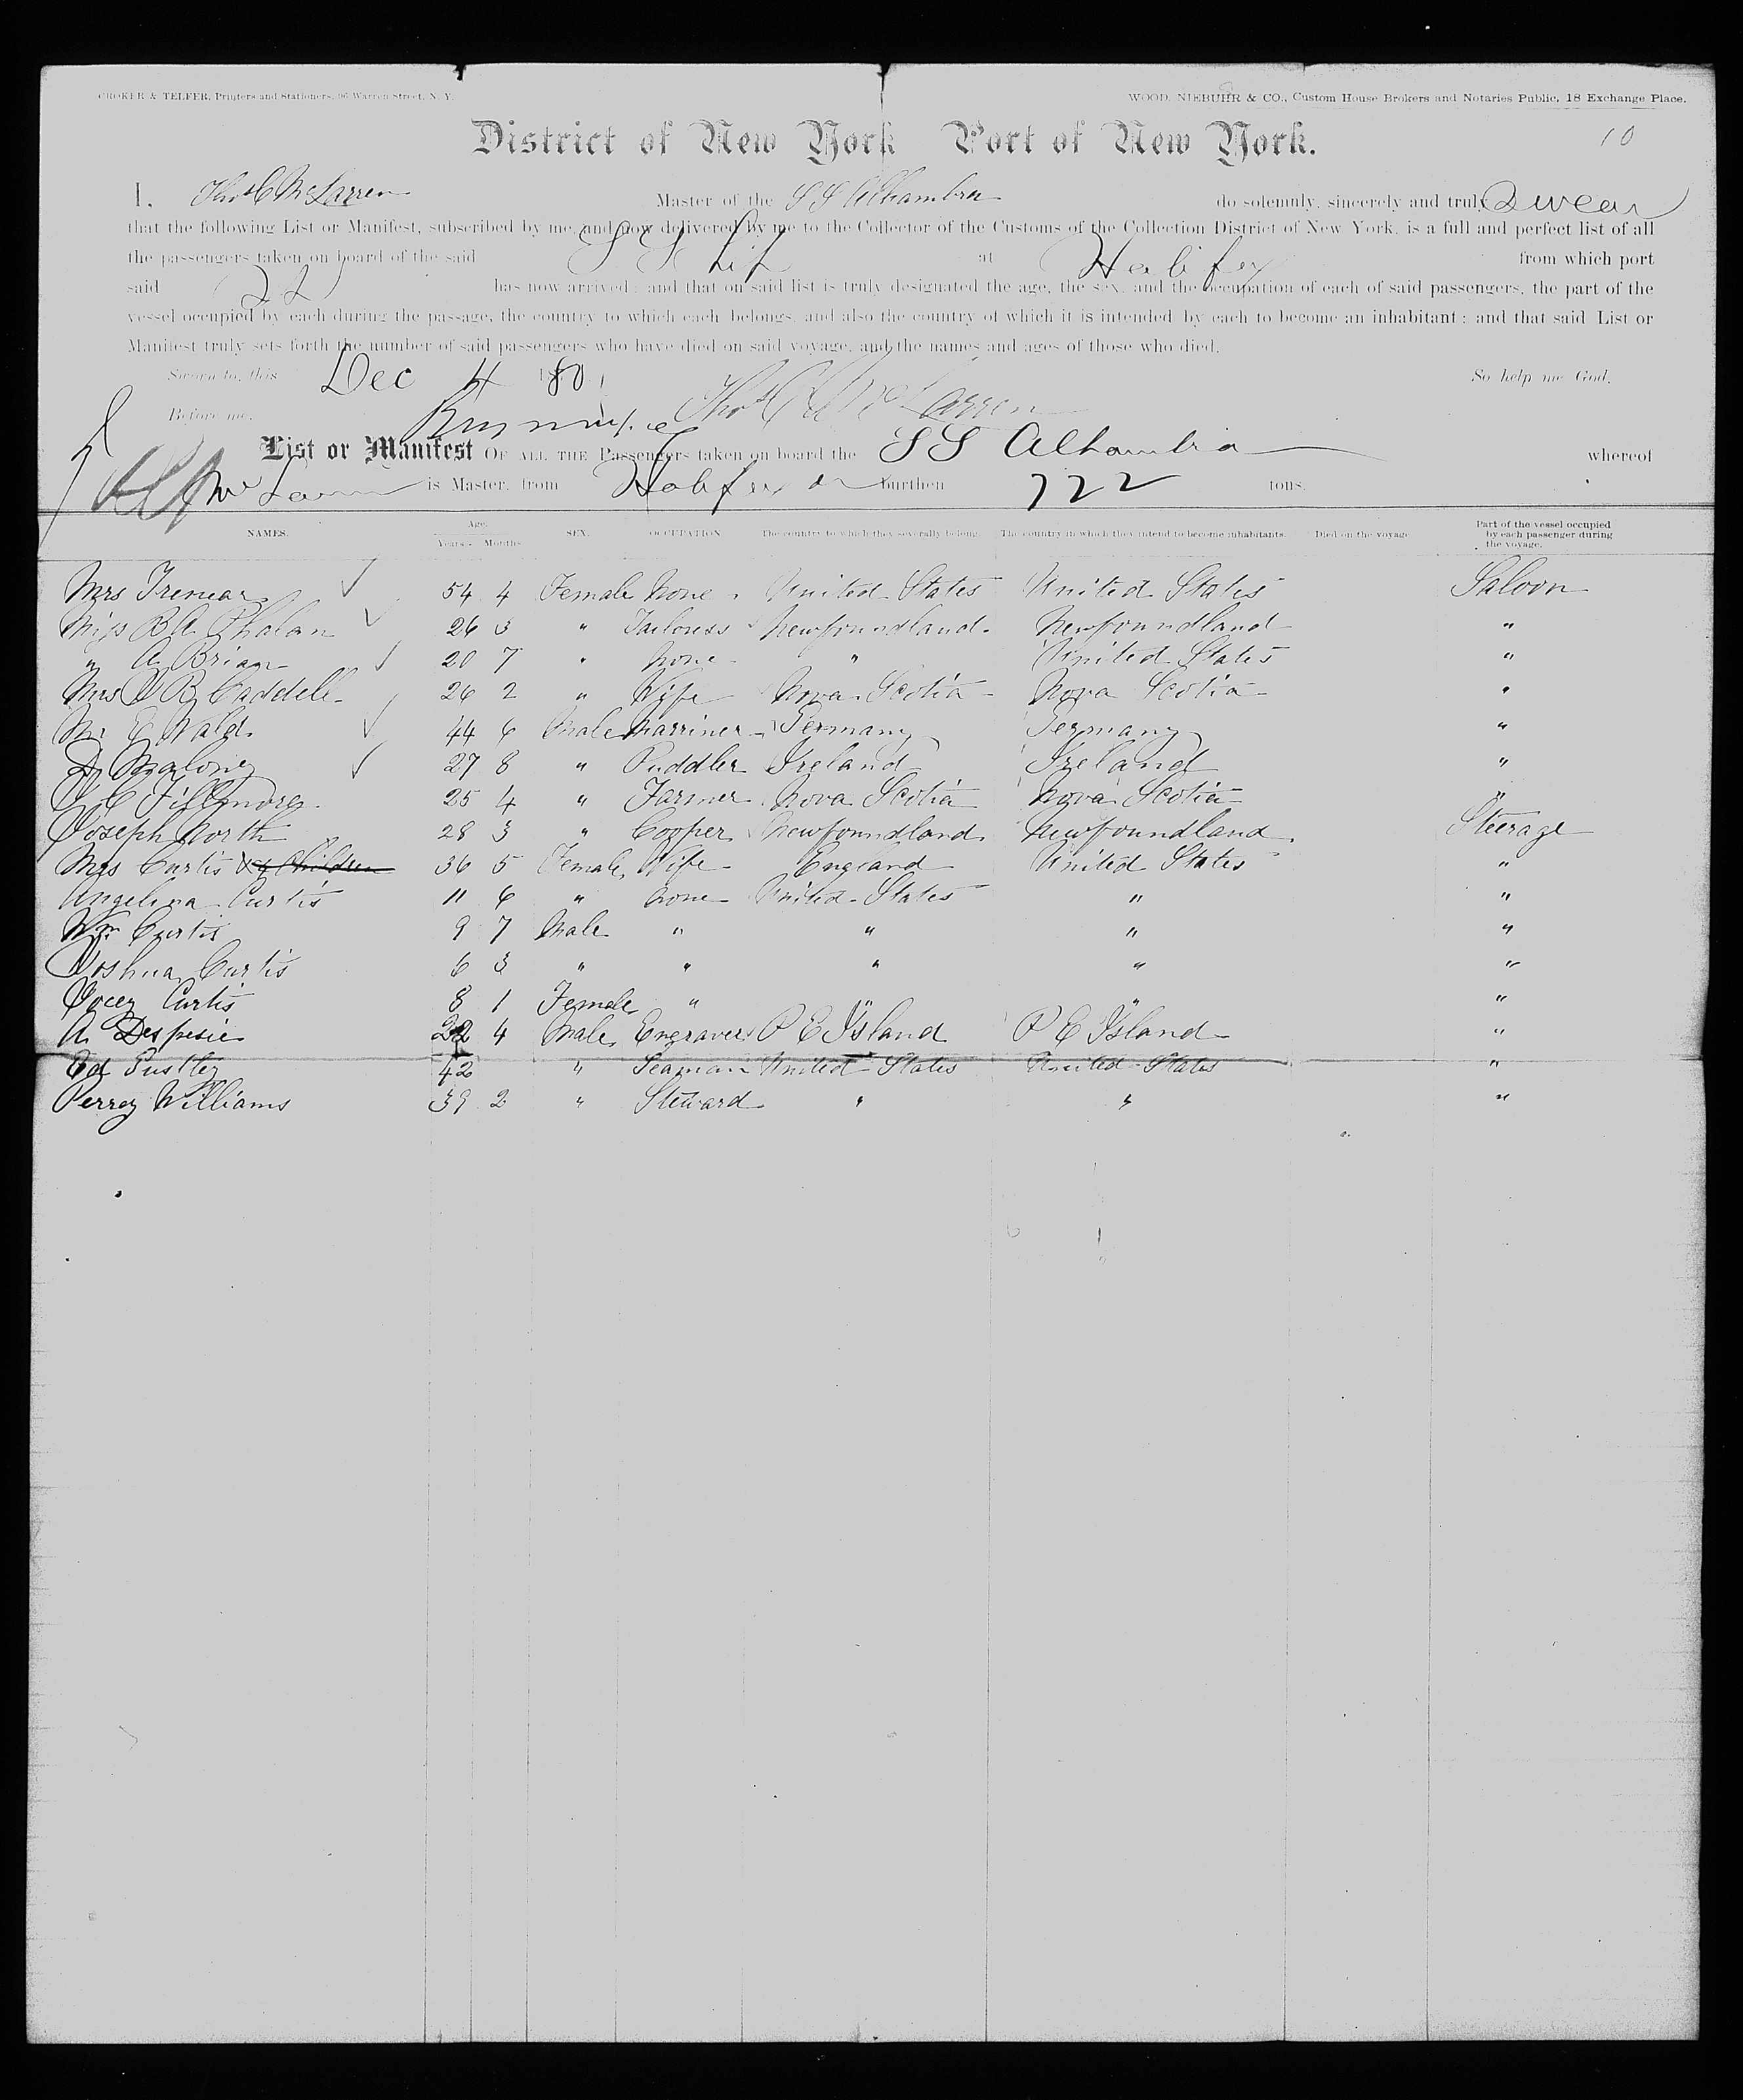 CROKER & TELFER, Printers and Stationers, 96 Warren Street, N. Y.
WOOD, NIEBUHR & CO., Custom House Brokers and Notaries Public, 18 Exchange Place.
District of New York Port of New York.
10
I, Thos C McLarren Master of the S S Alhambra do solemnly, sincerely and truly Swear
that the following List or Manifest, subscribed by me, and now delivered by me to the Collector of the Customs of the Collection District of New York, is a full and perfect list of all
the passengers taken on board of the said at Halifax from which port
said has now arrived; and that on said list is truly designated the age, the sex, and the occupation of each of said passengers, the part of the
vessel occupied by each during the passage, the country to which each belongs, and also the country of which it is intended by each to become an inhabitant; and that said List or
Manifest truly sets forth the number of said passengers who have died on said voyage, and the names and ages of those who died.
Sworn to, this Dec 4 1880 So help me God.
Before me, Thos C McLarren
List or Manifest OF ALL THE Passengers taken on board the S S Alhambra whereof
McLarren is Master, from Halifax burthen 722 tons.
NAMES. Age. Years. Months. SEX. OCCUPATION. The country to which they severally belong. The country in which they intend to become inhabitants. Died on the voyage. Part of the vessel occupied by each passenger during the voyage.
Mrs Trenear 54 4 Female None United States United States Saloon
Miss B A Phalan 26 3 " Tailoress Newfoundland Newfoundland "
" A Brian 20 7 " None " United States "
Mrs J B Caddell 26 2 " Wife Nova Scotia Nova Scotia "
Mr E Wald 44 6 Male Marriner Germany Germany "
D Maloney 27 8 " Puddler Ireland Ireland "
J C Fillmore 25 4 " Farmer Nova Scotia Nova Scotia "
Joseph North 28 3 " Cooper Newfoundland Newfoundland Steerage
Mrs Curtis & 4 Children 36 5 Female Wife England United States "
Angelina Curtis 11 6 " None United States " "
Wm Curtis 9 7 Male " " " "
Joshua Curtis 6 3 " " " " "
Jocey Curtis 8 1 Female " " " "
A Despesie 22 4 Male Engraver P E Island P E Island "
Ed Pustley 42 " Seaman United States United States "
Perrey Williams 39 2 " Steward " " "